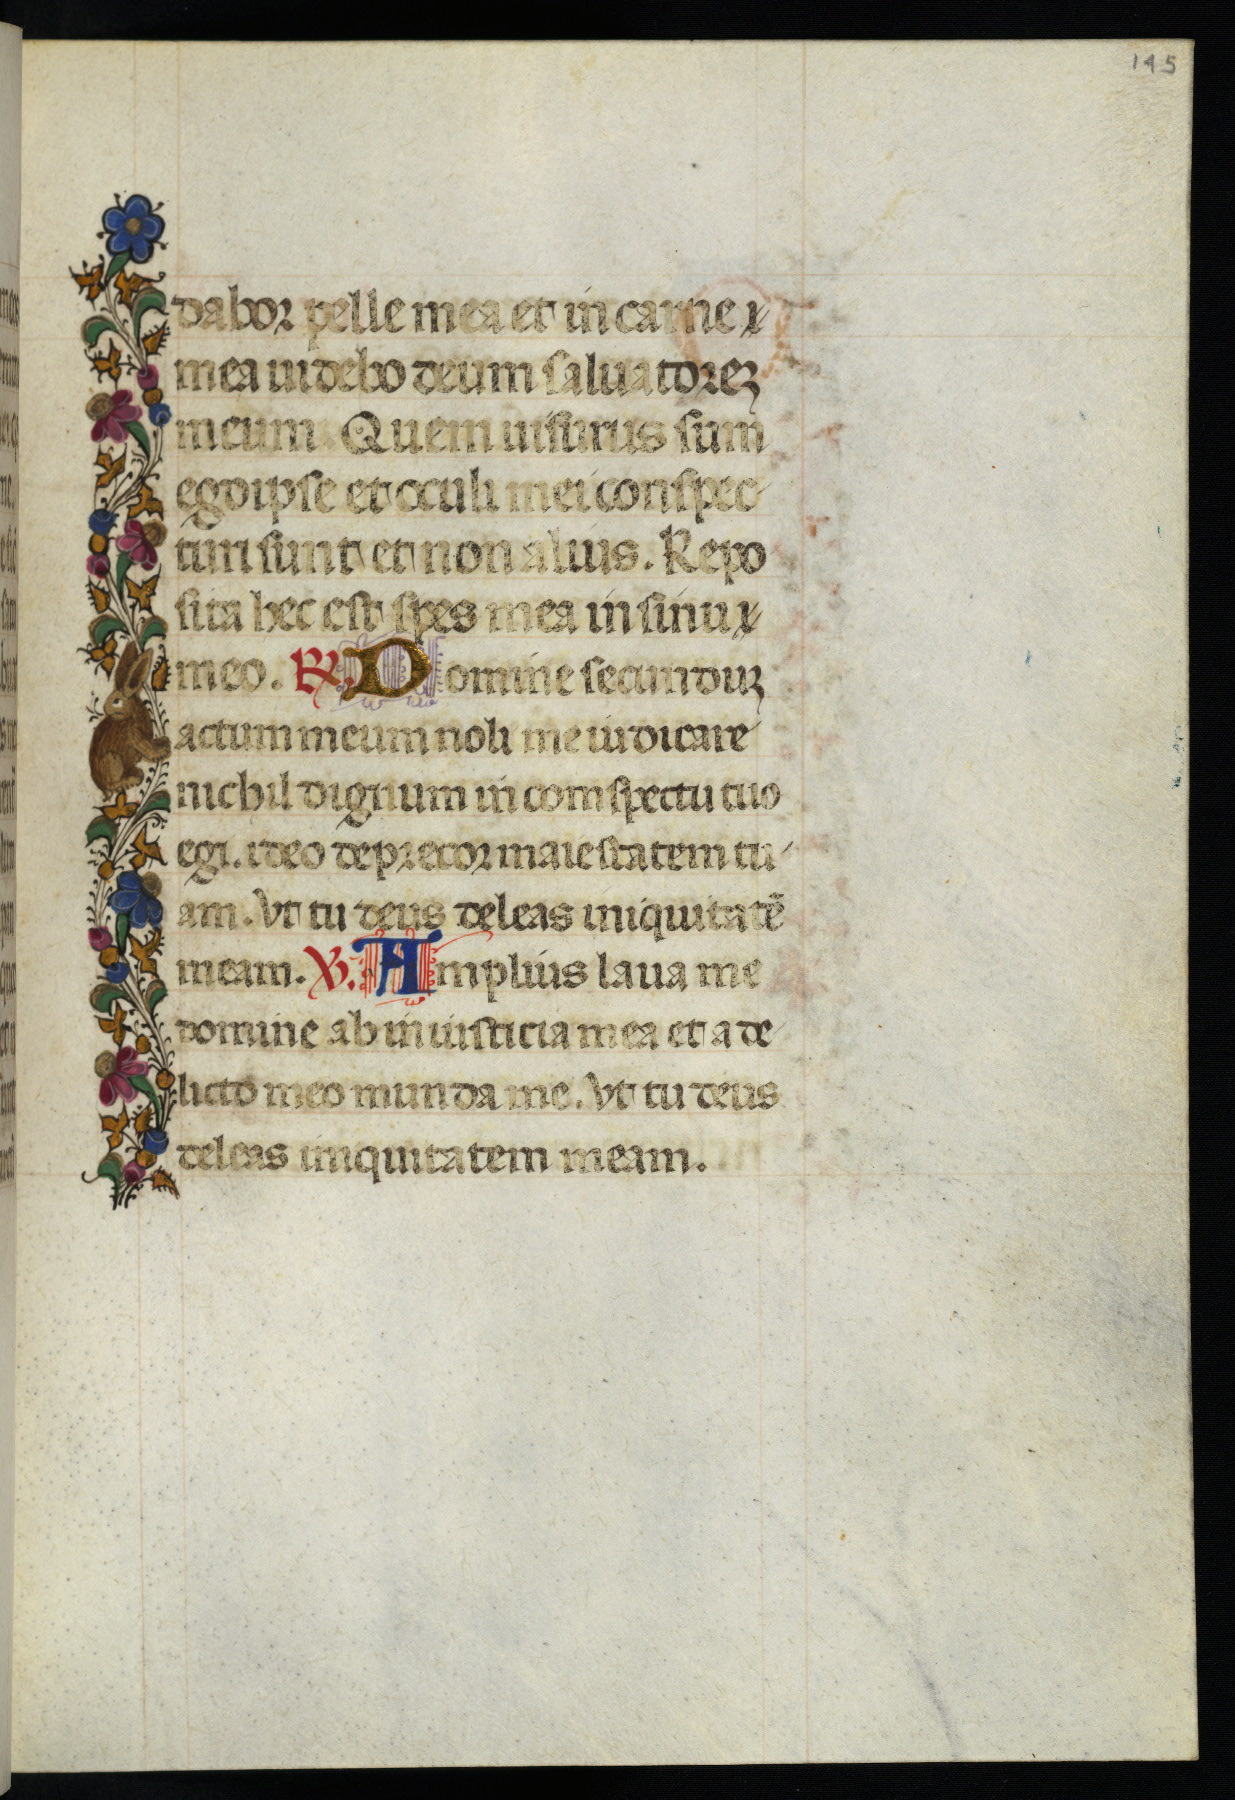 145
dabor pelle mea et in carne
mea uidebo deum saluatorez
meum. Quem uisurus sum
ego ipse et occuli mei conspec
turi sunt et non alius. Repo
sita hec est spes mea in sinu
meo. ℟. Domine secunduz
actum meum noli me iudicare
nichil dignum in comspectu tuo
egi. ideo deprecor maiestatem tu
am. Vt tu deus deleas iniquitatē
meam. ℣. Amplius laua me
domine ab iniusticia mea et a de
licto meo munda me. Vt tu deus
deleas iniquitatem meam.